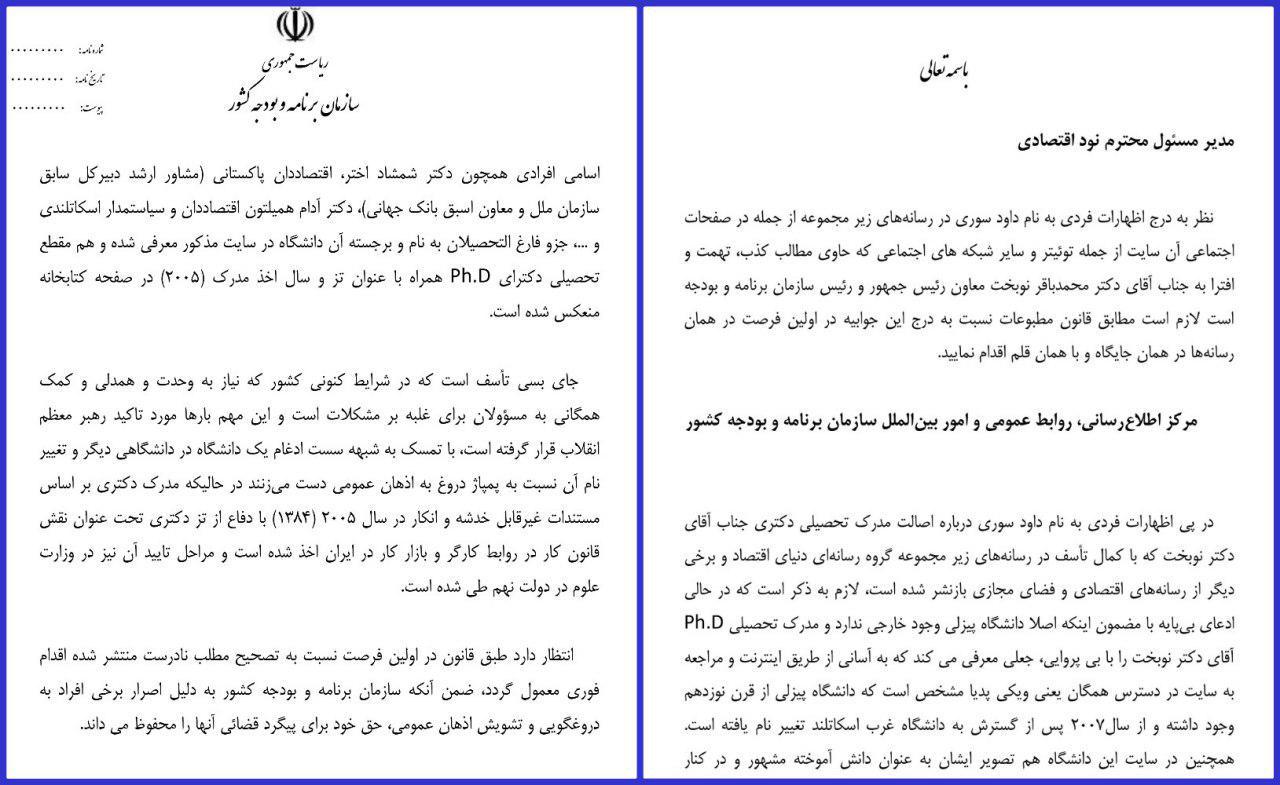 باسمه تعالی
مدیر مسئول محترم نود اقتصادی
نظر به درج اظهارات فردی به نام داود سوری در رسانه‌های زیر مجموعه از جمله در صفحات
اجتماعی آن سایت از جمله توئیتر و سایر شبکه های اجتماعی که حاوی مطالب کذب، تهمت و
افترا به جناب آقای دکتر محمدباقر نوبخت معاون رئیس جمهور و رئیس سازمان برنامه و بودجه
است لازم است مطابق قانون مطبوعات نسبت به درج این جوابیه در اولین فرصت در همان
رسانه‌ها در همان جایگاه و با همان قلم اقدام نمایید.
مرکز اطلاع‌رسانی، روابط عمومی و امور بین‌الملل سازمان برنامه و بودجه کشور
در پی اظهارات فردی به نام داود سوری درباره اصالت مدرک تحصیلی دکتری جناب آقای
دکتر نوبخت که با کمال تأسف در رسانه‌های زیر مجموعه گروه رسانه‌ای دنیای اقتصاد و برخی
دیگر از رسانه‌های اقتصادی و فضای مجازی بازنشر شده است، لازم به ذکر است که در حالی
ادعای بی‌پایه با مضمون اینکه اصلا دانشگاه پیزلی وجود خارجی ندارد و مدرک تحصیلی Ph.D
آقای دکتر نوبخت را با بی پروایی، جعلی معرفی می کند که به آسانی از طریق اینترنت و مراجعه
به سایت در دسترس همگان یعنی ویکی پدیا مشخص است که دانشگاه پیزلی از قرن نوزدهم
وجود داشته و از سال۲۰۰۷ پس از گسترش به دانشگاه غرب اسکاتلند تغییر نام یافته است.
همچنین در سایت این دانشگاه هم تصویر ایشان به عنوان دانش آموخته مشهور و در کنار
ریاست جمهوری
سازمان برنامه و بودجه کشور
شماره نامه: .........
تاریخ نامه: .........
پیوست: .........
اسامی افرادی همچون دکتر شمشاد اختر، اقتصاددان پاکستانی (مشاور ارشد دبیرکل سابق
سازمان ملل و معاون اسبق بانک جهانی)، دکتر آدام همیلتون اقتصاددان و سیاستمدار اسکاتلندی
و ...، جزو فارغ التحصیلان به نام و برجسته آن دانشگاه در سایت مذکور معرفی شده و هم مقطع
تحصیلی دکترای Ph.D همراه با عنوان تز و سال اخذ مدرک (۲۰۰۵) در صفحه کتابخانه
منعکس شده است.
جای بسی تأسف است که در شرایط کنونی کشور که نیاز به وحدت و همدلی و کمک
همگانی به مسؤولان برای غلبه بر مشکلات است و این مهم بارها مورد تاکید رهبر معظم
انقلاب قرار گرفته است، با تمسک به شبهه سست ادغام یک دانشگاه در دانشگاهی دیگر و تغییر
نام آن نسبت به پمپاژ دروغ به اذهان عمومی دست می‌زنند در حالیکه مدرک دکتری بر اساس
مستندات غیرقابل خدشه و انکار در سال ۲۰۰۵ (۱۳۸۴) با دفاع از تز دکتری تحت عنوان نقش
قانون کار در روابط کارگر و بازار کار در ایران اخذ شده است و مراحل تایید آن نیز در وزارت
علوم در دولت نهم طی شده است.
انتظار دارد طبق قانون در اولین فرصت نسبت به تصحیح مطلب نادرست منتشر شده اقدام
فوری معمول گردد، ضمن آنکه سازمان برنامه و بودجه کشور به دلیل اصرار برخی افراد به
دروغگویی و تشویش اذهان عمومی، حق خود برای پیگرد قضائی آنها را محفوظ می داند.